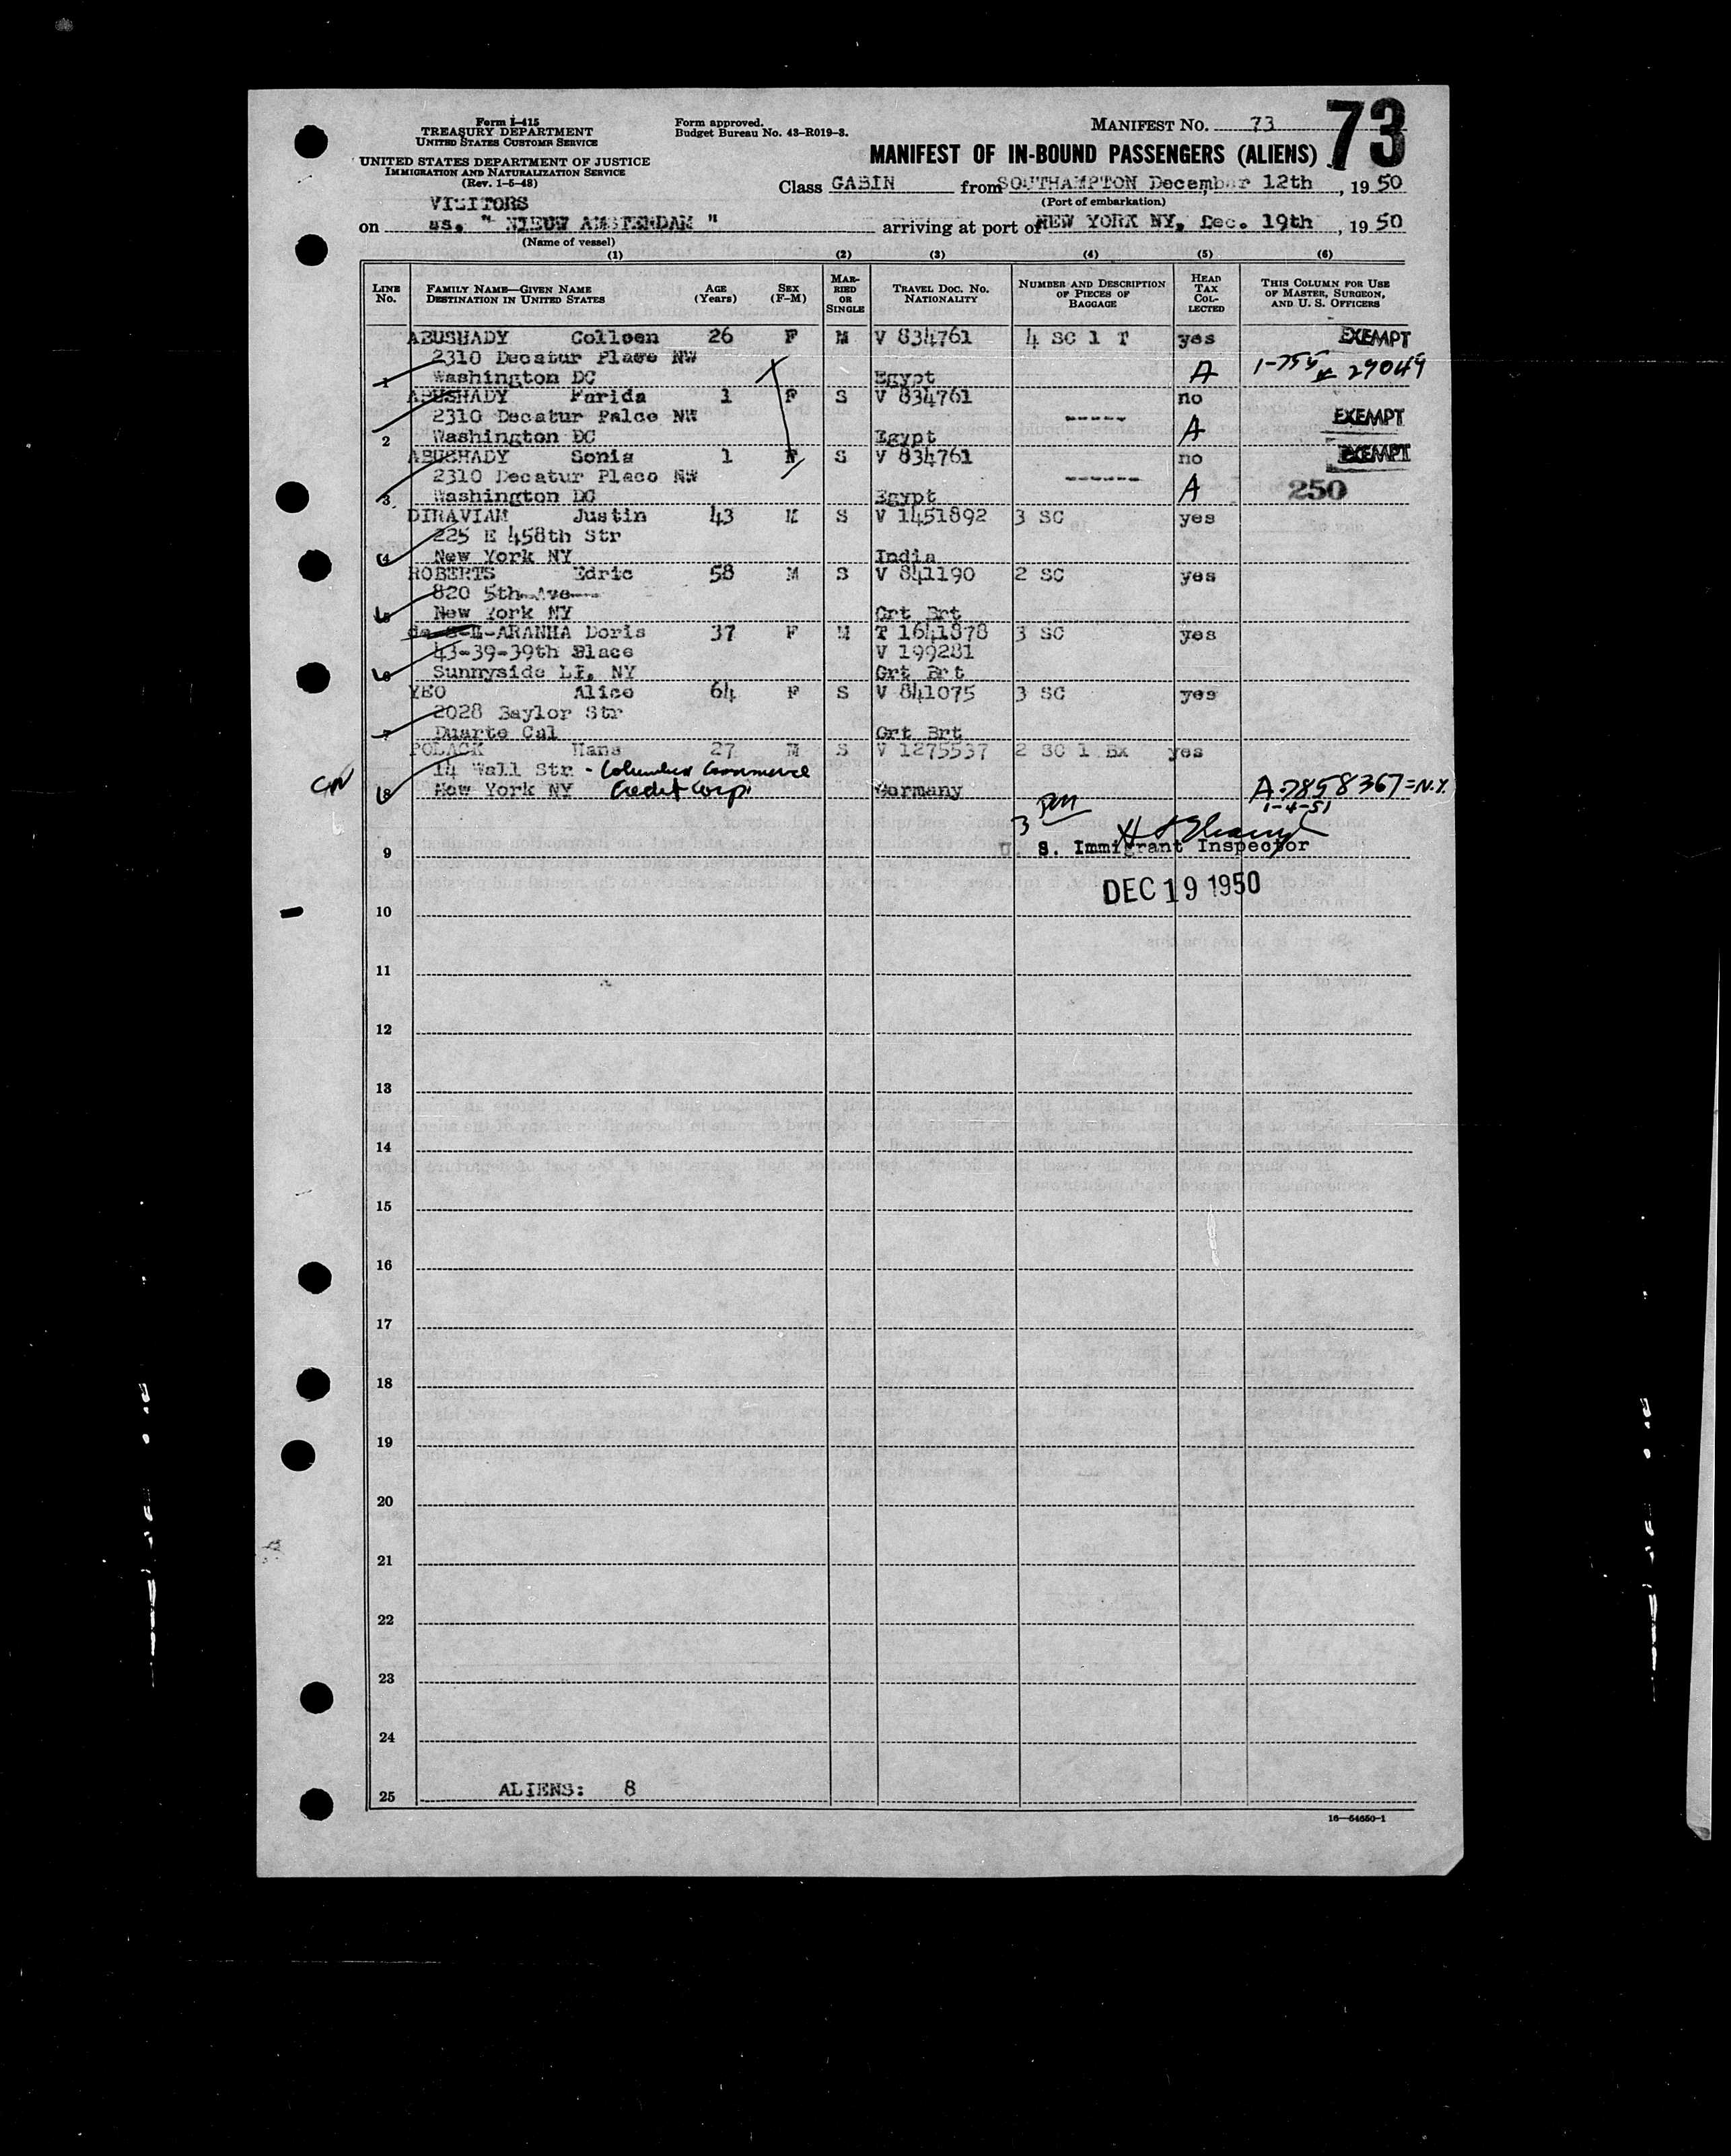 Form I-415
TREASURY DEPARTMENT
UNITED STATES CUSTOMS SERVICE
UNITED STATES DEPARTMENT OF JUSTICE
IMMIGRATION AND NATURALIZATION SERVICE
(Rev. 1-5-48)
Form approved.
Budget Bureau No. 43-R019-3.
MANIFEST NO. 73
73
MANIFEST OF IN-BOUND PASSENGERS (ALIENS)
Class CABIN from SOUTHAMPTON December 12th, 1950
(Port of embarkation)
VISITORS
on ss. "NIEUW AMSTERDAM" arriving at port of NEW YORK NY, Dec. 19th, 1950
(Name of vessel)
(1) (2) (3) (4) (5) (6)
LINE NO. FAMILY NAME—GIVEN NAME DESTINATION IN UNITED STATES AGE (Years) SEX (F-M) MARRIED OR SINGLE TRAVEL DOC. NO. NATIONALITY NUMBER AND DESCRIPTION OF PIECES OF BAGGAGE HEAD TAX COLLECTED THIS COLUMN FOR USE OF MASTER, SURGEON, AND U. S. OFFICERS
ABUSHADY Colleen 26 F M V 834761 4 SC 1 T yes EXEMPT
2310 Decatur Place NW
1 Washington DC Egypt A 29049
ABUSHADY Farida 1 F S V 834761 no
2310 Decatur Palce NW ----- EXEMPT
2 Washington DC Egypt A
ABUSHADY Sonia 1 F S V 834761 no EXEMPT
2310 Decatur Place NW ------
3 Washington DC Egypt A 250
DIRAVIAM Justin 43 M S V 1451892 3 SC yes
225 E 458th Str
4 New York NY India
ROBERTS Edric 58 M S V 841190 2 SC yes
820 5th Ave
5 New York NY Grt Brt
-ARANHA Doris 37 F M T 1641878 3 SC yes
43-39-39th Place V 199281
6 Sunnyside LI, NY Grt Brt
YEO Alice 64 F S V 841075 3 SC yes
2028 Baylor Str
7 Duarte Cal Grt Brt
POLACK Hans 27 M S V 1275537 2 SC 1 Bx yes
14 Wall Str - Columbia Commerce
8 New York NY Credit Corp. Germany A-7858367=N.Y.
1-4-51
9 U. S. Immigrant Inspector
DEC 19 1950
10
11
12
13
14
15
16
17
18
19
20
21
22
23
24
25 ALIENS: 8
16—54650-1